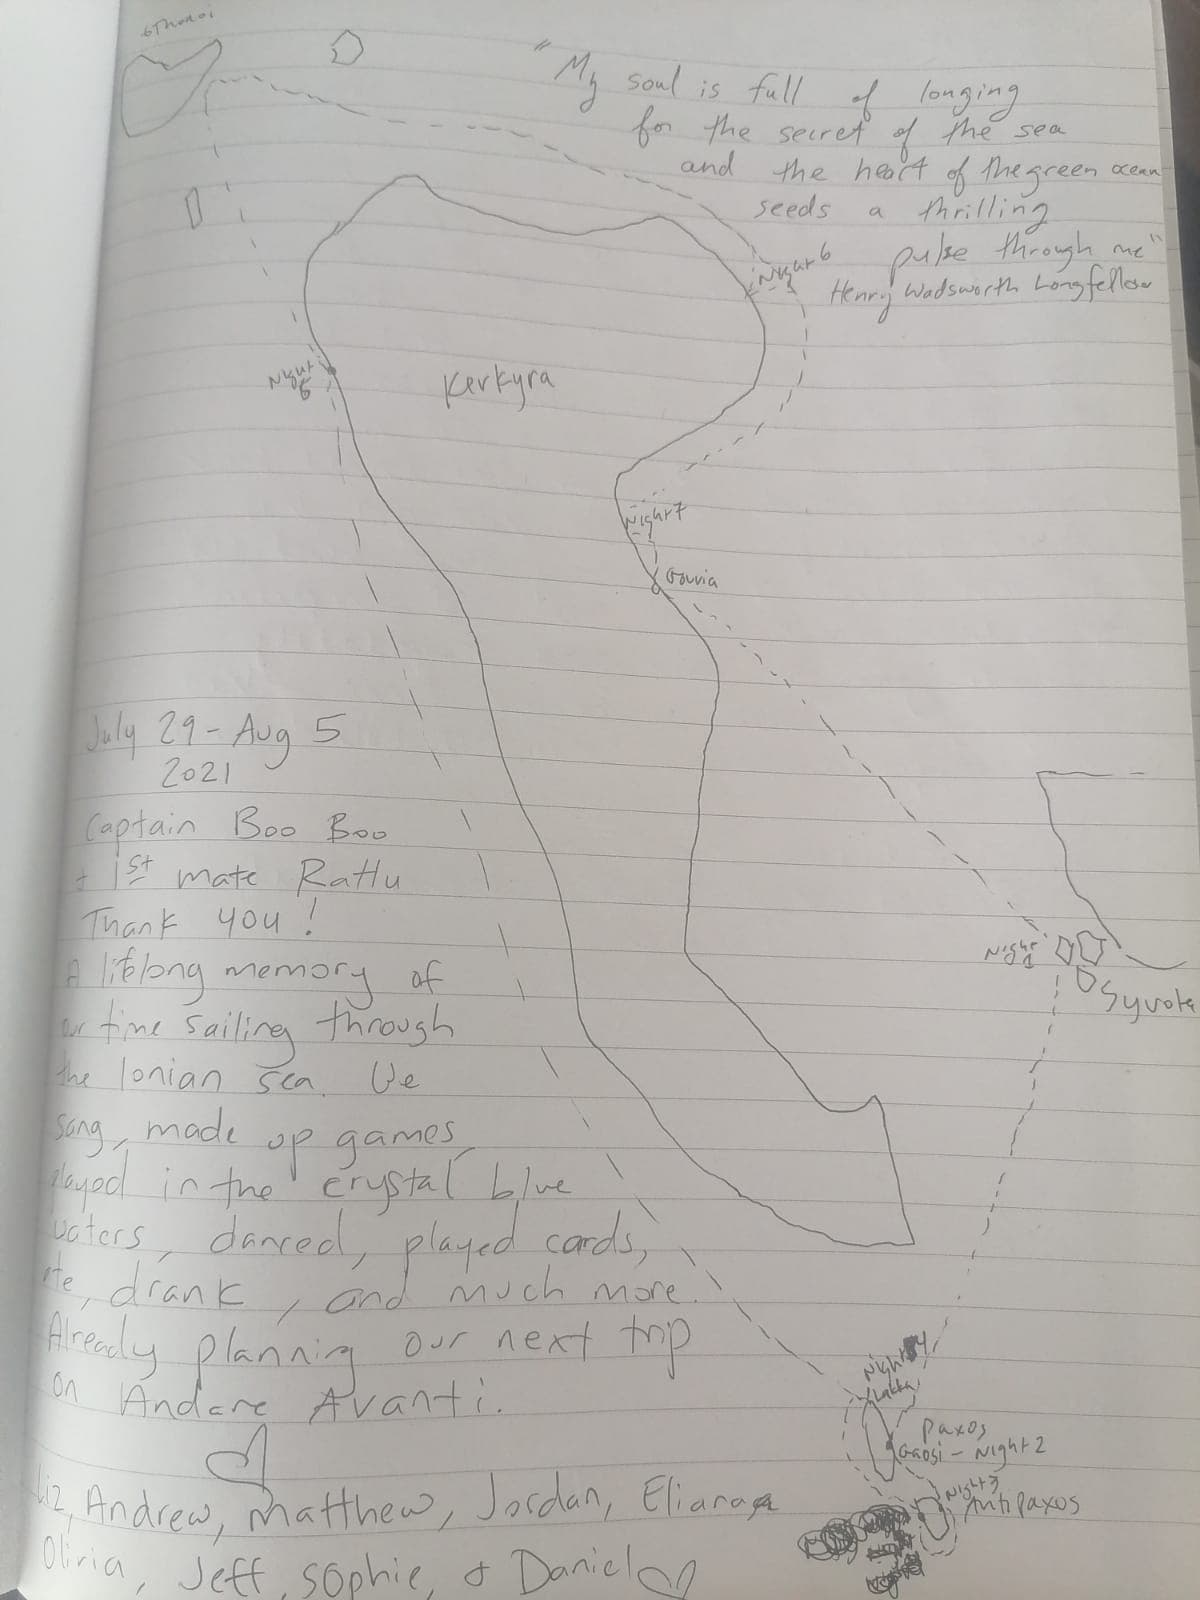 othonoi
"My soul is full of longing
for the secret of the sea
and the heart of the green ocean
seeds a thrilling
pulse through me"
Henry Wadsworth Longfellow
Night 6
Night
5
Kerkyra
Night 7
Gouvia
July 29 - Aug 5
2021
Captain Boo Boo
+ 1st mate Rattu
Thank you!
A lifelong memory of
our time sailing through
the Ionian sea. We
sang, made up games,
played in the crystal blue
waters, danced, played cards,
ate, drank, and much more.
Already planning our next trip
on Andare Avanti.
Liz, Andrew, Matthew, Jordan, Eliana
Olivia, Jeff, Sophie, & Daniel
Night
1
Syvota
Night 4
Lakka
Paxos
Gaosi - Night 2
Night 3
Antipaxos